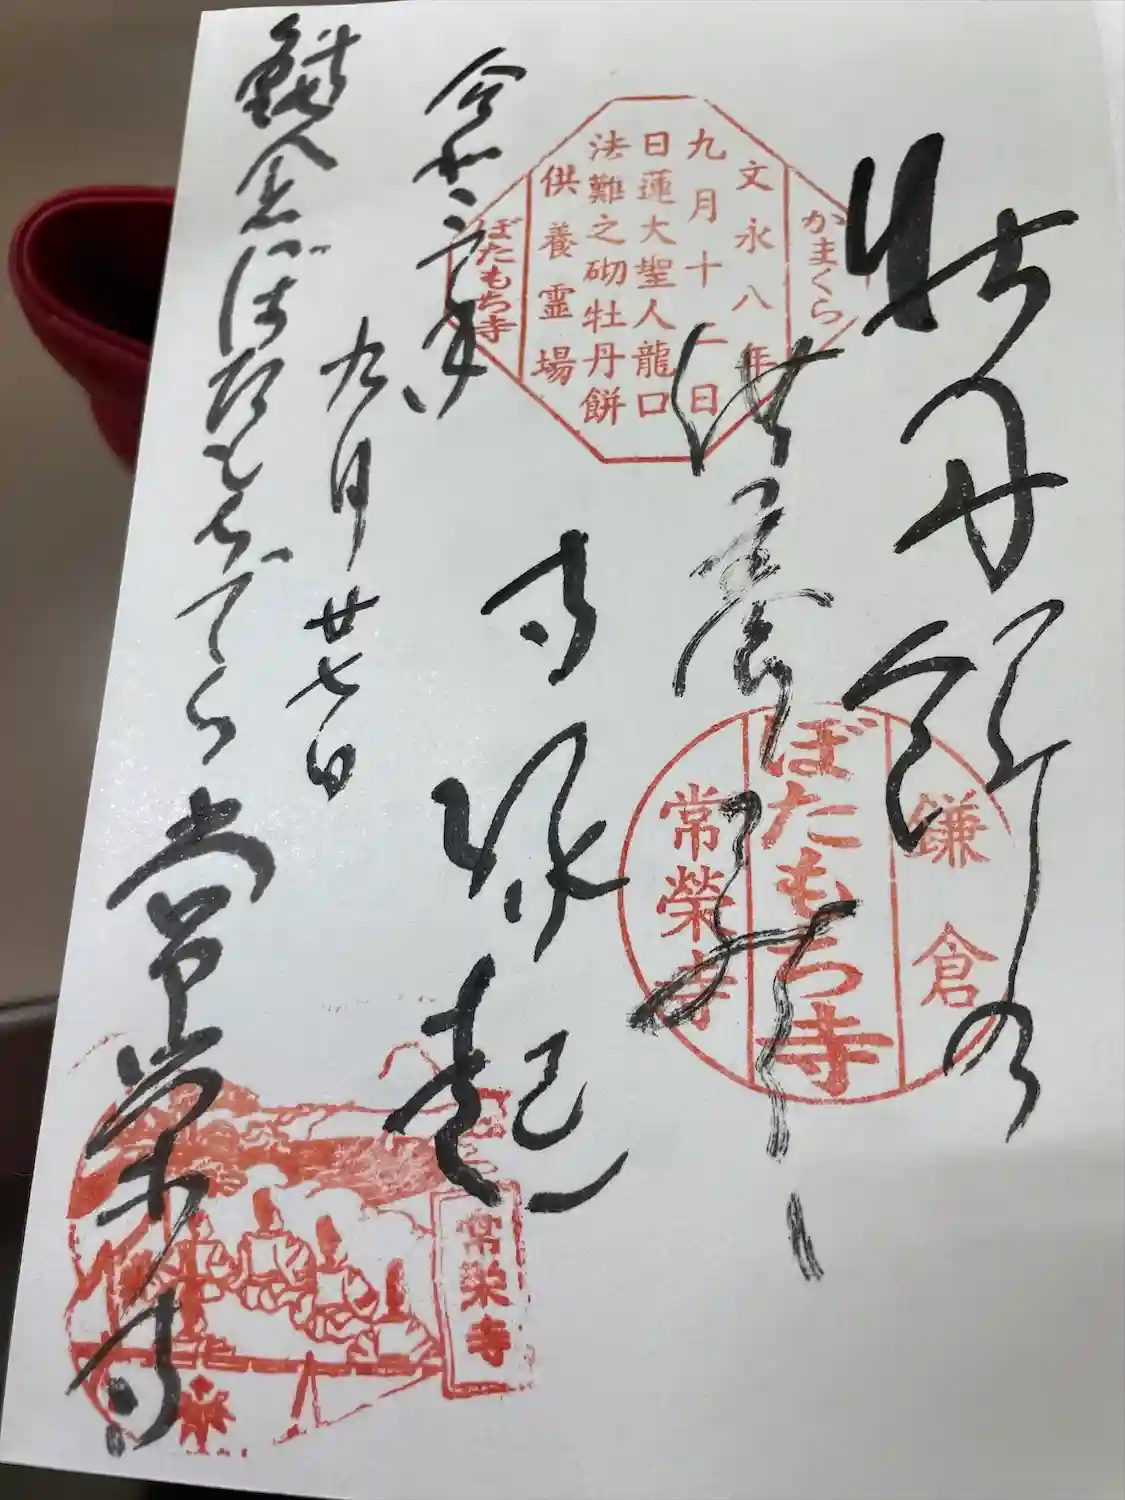 牡丹餅の
供養
寺縁起
令和二年
九月廿七日
鎌倉ぼたもちでら
常栄寺
かまくら
文永八年
九月十二日
日蓮大聖人龍口
法難之砌牡丹餅
供養霊場
ぼたもち寺
鎌倉
ぼたもち寺
常榮寺
常栄寺